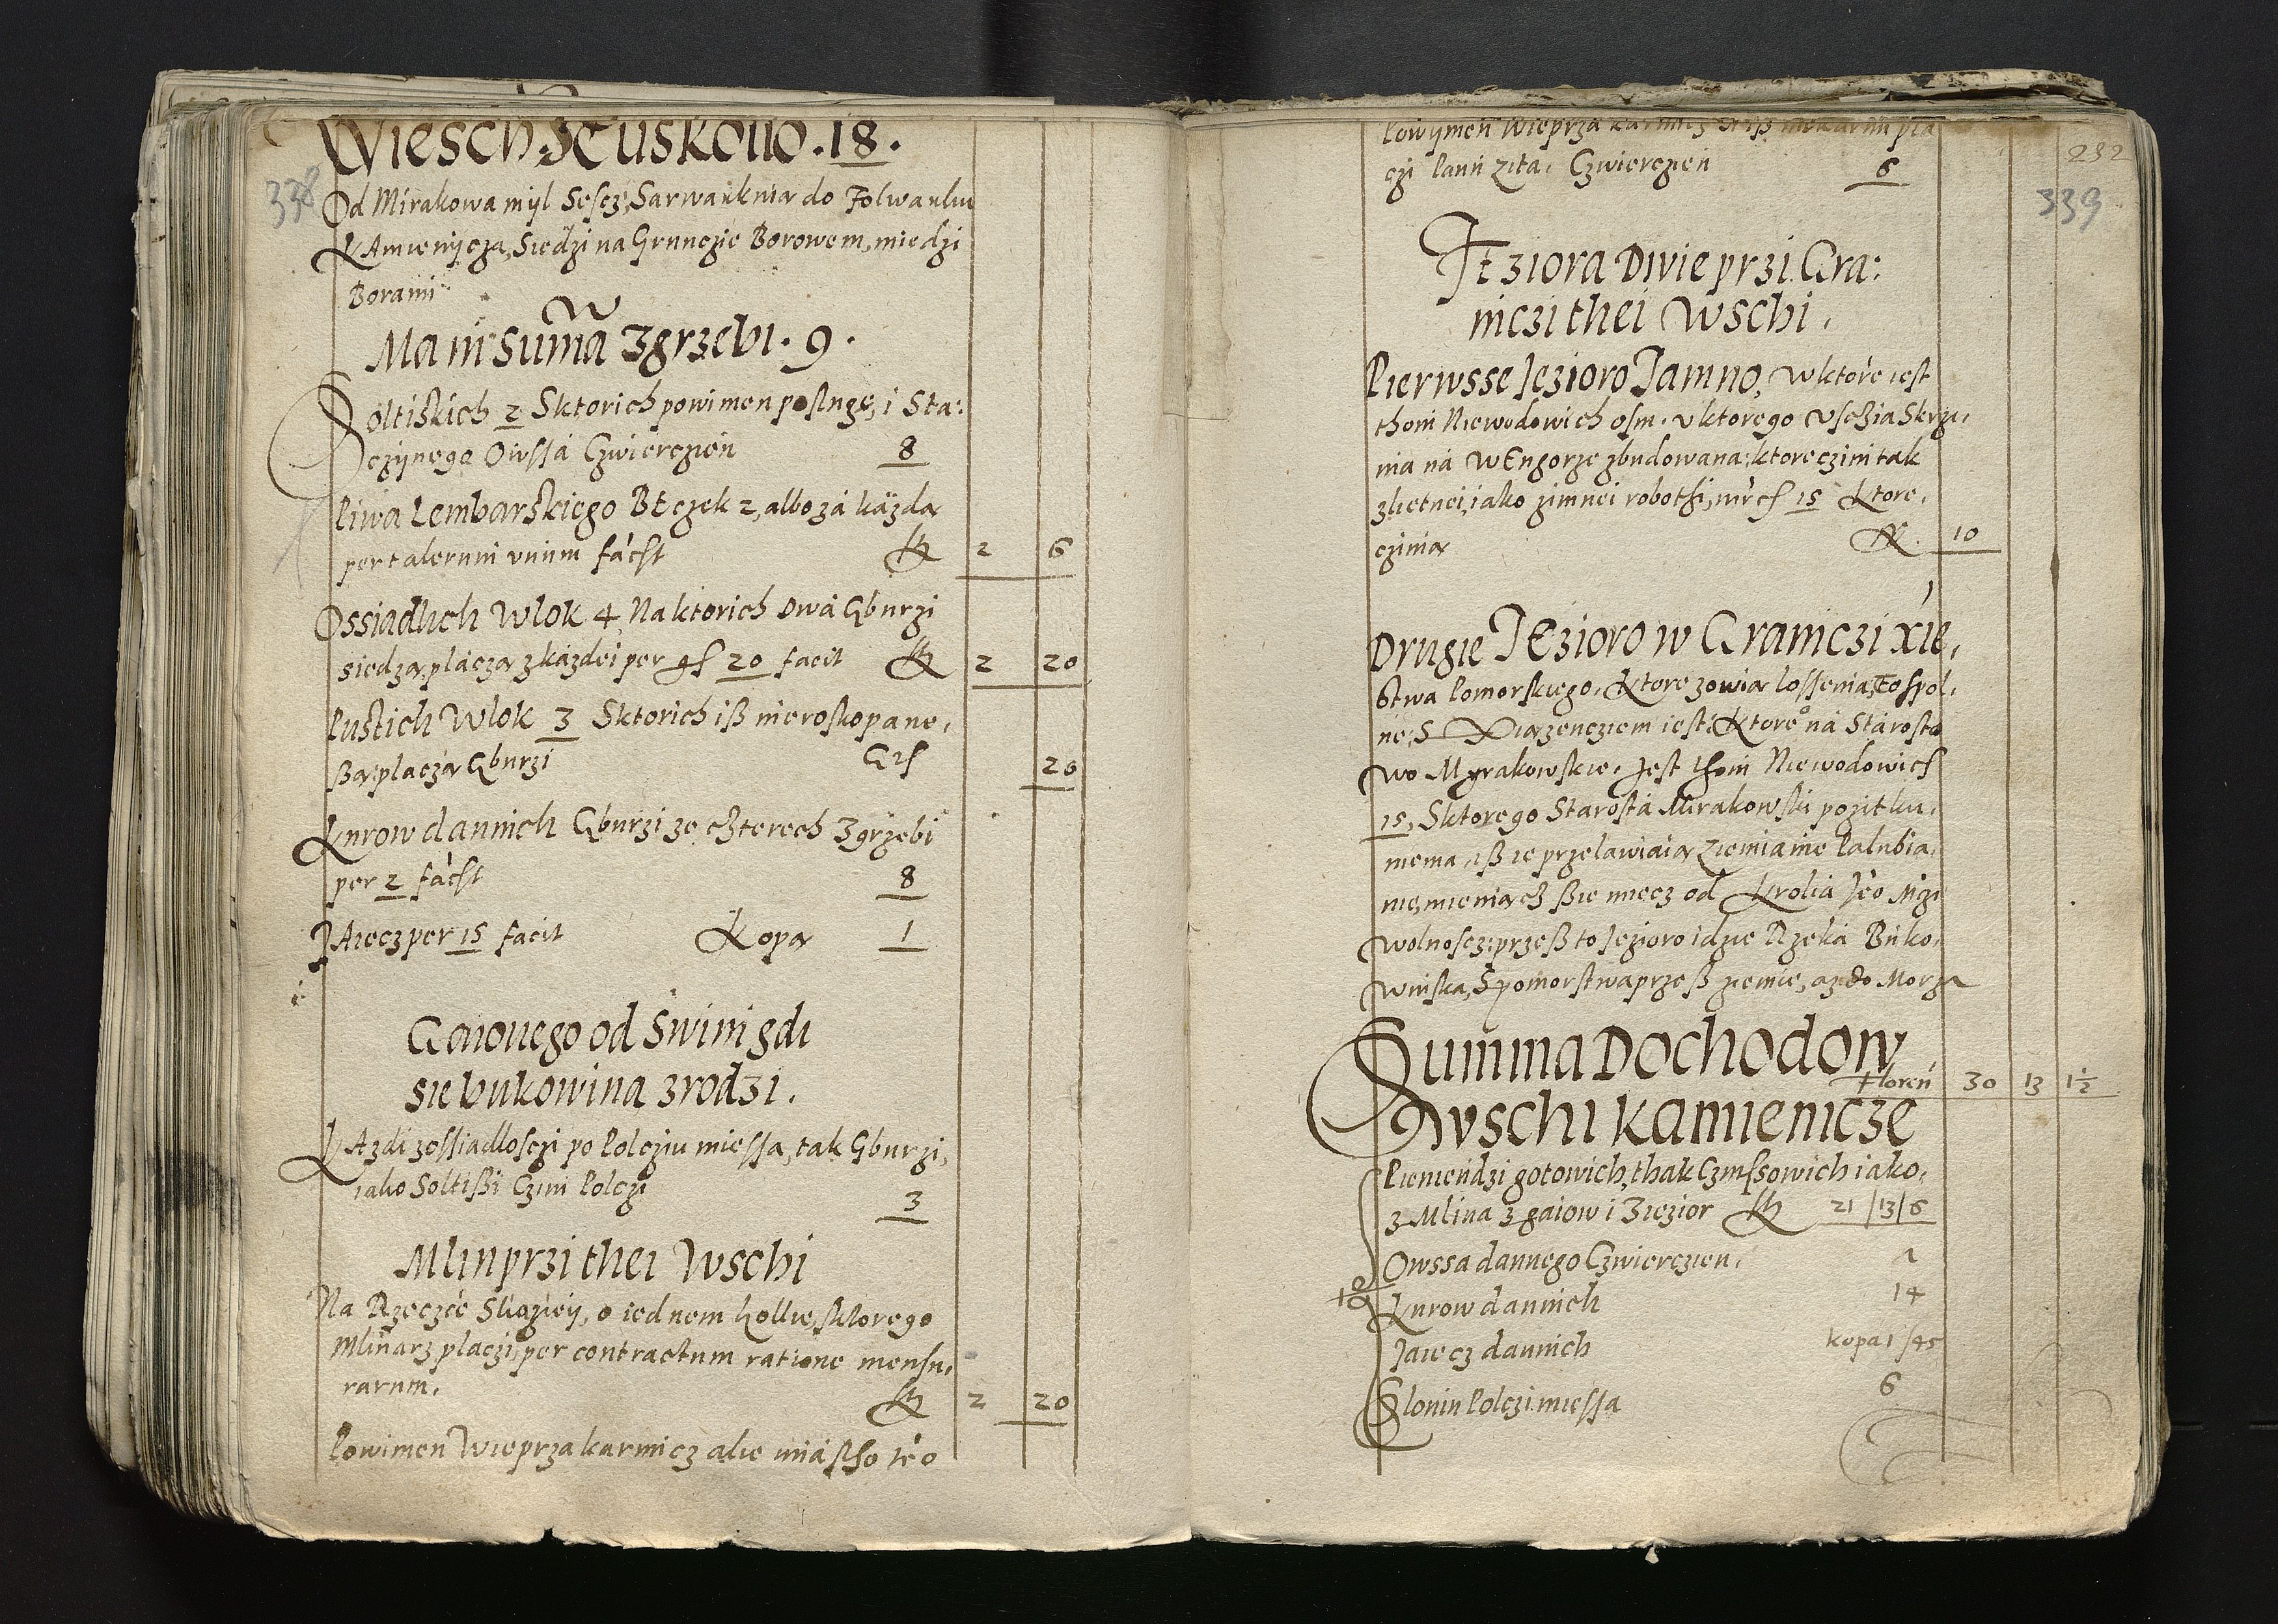 Wiesch Zcuskowo . 18 .
338
Od Mirakowa mÿl Sescz, Sarwarknią do Folwarku
KAmienÿcza, Siedzi na Grunczie Borowem, miedzi
Borami
Ma in Summa Zgrzebi . 9 .
Soltiskich 2 Sktorich powinien poslugę, i Sta:
czÿnego Owssa Czwierczień 8
Piwa Lembarskiego BEczek 2, albo zá kázdą
per talerum unum fácit 2 6
Ossiadlich Wlok 4 Na ktorich Dwá Gburzi
siedzą, plączą z kázdei per gſ 20 facit 2 20
Pustich Wlok 3 Sktorich iß nieroskopane,
ßą: placzą Gburzi Grſ 20
Kurow dannich Gburzi ze czterech Zgrzebi
per 2 fácit 8
JAiecz per 15 facit Kopą 1
Gaiowego od Swini gdi
sie bukowina zrodzi .
KAzdi zossiadlosczi po Polcziu miessa, tak Gburzi,
iako Soltißi Czini Polczi 3
Mlin przi thei Wschi
Na Rzeczce Slúpiey, o iednem kollie, sktorego
Mlinarz placzi, per contractum ratione mensu,
rarum. 2 20
Powinien Wieprza karmicz alie miásto téo
232
powÿnien Wieprza karmicz iß niekarmi pla
czi Pann Zita. Czwierczień 6
339
JEziora Dwie przi Gra:
niczi thei Wschi .
Pierwsse Jezioro Jamno, w ktore iest
thoni Niewodowich osm. v ktorego vscżia Skrzi,
nia ná WEngorze zbudowana: ktore czini tak
z lietnei, iako zimnei robothi, mrcſ 15 Ktore,
czinią 10
Drugie JEzioro w Graniczi xię,
stwa Pomorskiego, Ktore zowią Lossenia, tospol,
ne: S Xiązencziem iest: Ktore ná Stárostw
wo Myrakowskie. Jest thoni Niewodowich
15, Sktorego Starosta Mirakowski pozitku,
niema, iß ie przelawiaią Ziemianie Palubia,
nie, mieniącz ßie miecz od Krolia Jéo Mczi
wolnoscz: przeß to Jezioro idzie Rzeká Buko,
winska, S pomorstwa przeß ziemie, az do Morza
Summa Dochodow
Floren 30 13 1½
wschi Kamienicze
Pieniendzi gotowich, thak Czinssowich iako,
z Mlina z gaiow i Ziezior 21 /13/6
Owssa dannego Czwierczien. 1
Kurow dannich 14
Jaiecz dannich kopa 1 /45
Slonin Polczi miessa 6